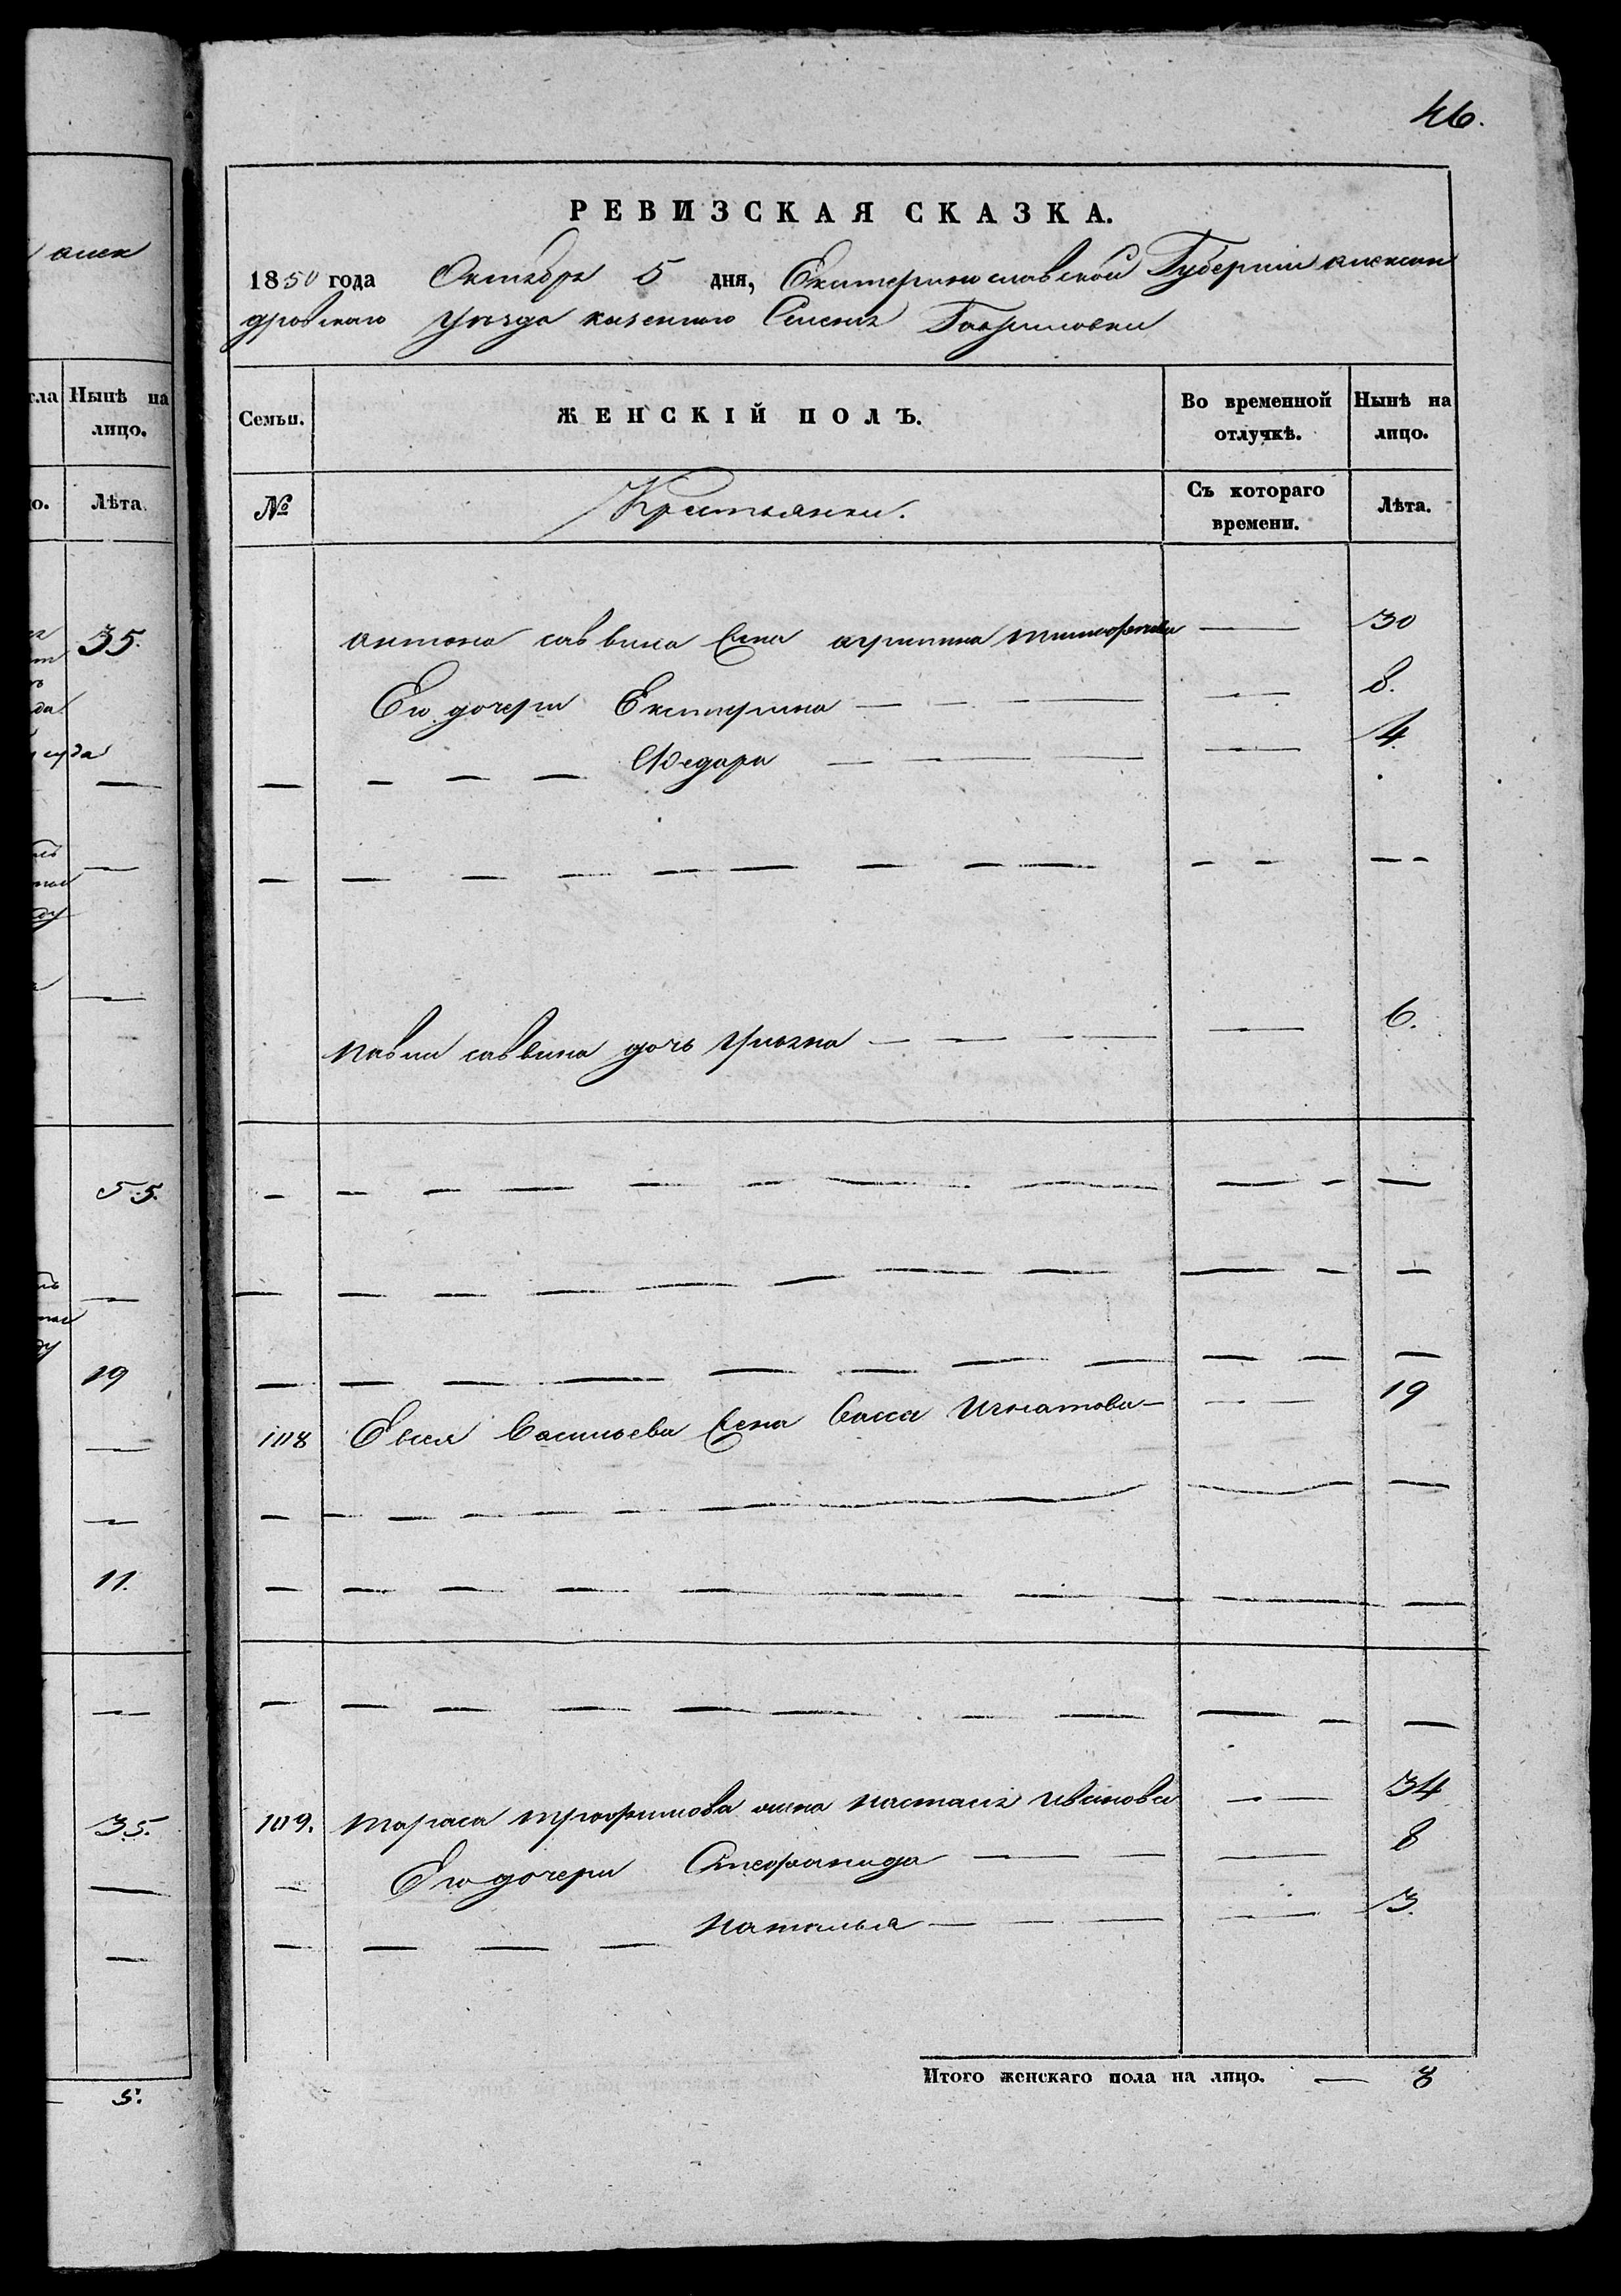 46.
РЕВИЗСКАЯ СКАЗКА.
1850 года Октября 5 дня, Екатеринославской Губернiи алексан
дровскаго уезда казеннаго Селенiя Гавриловки
Семьи. ЖЕНСКIЙ ПОЛЪ. Во временной отлучкѣ. Нынѣ на лицо.
№ Крестьянки. Съ котораго времени. Лѣта.
антона саввина жена агрипина тимофеева — 30
Его дочери Екатерина — 8.
Федора — 4.
павла саввина дочь улияна — 6.
108 Евсея Васильева жена Васса Игнатова — 19
109. тараса трофимова жена настасия иванова — 34
Его дочери Стефанида — 8
наталья — 3.
Итого женскаго пола на лицо. — 8
алек
Нынѣ на лицо.
Лѣта.
35.
55.
19
11.
35.
5.